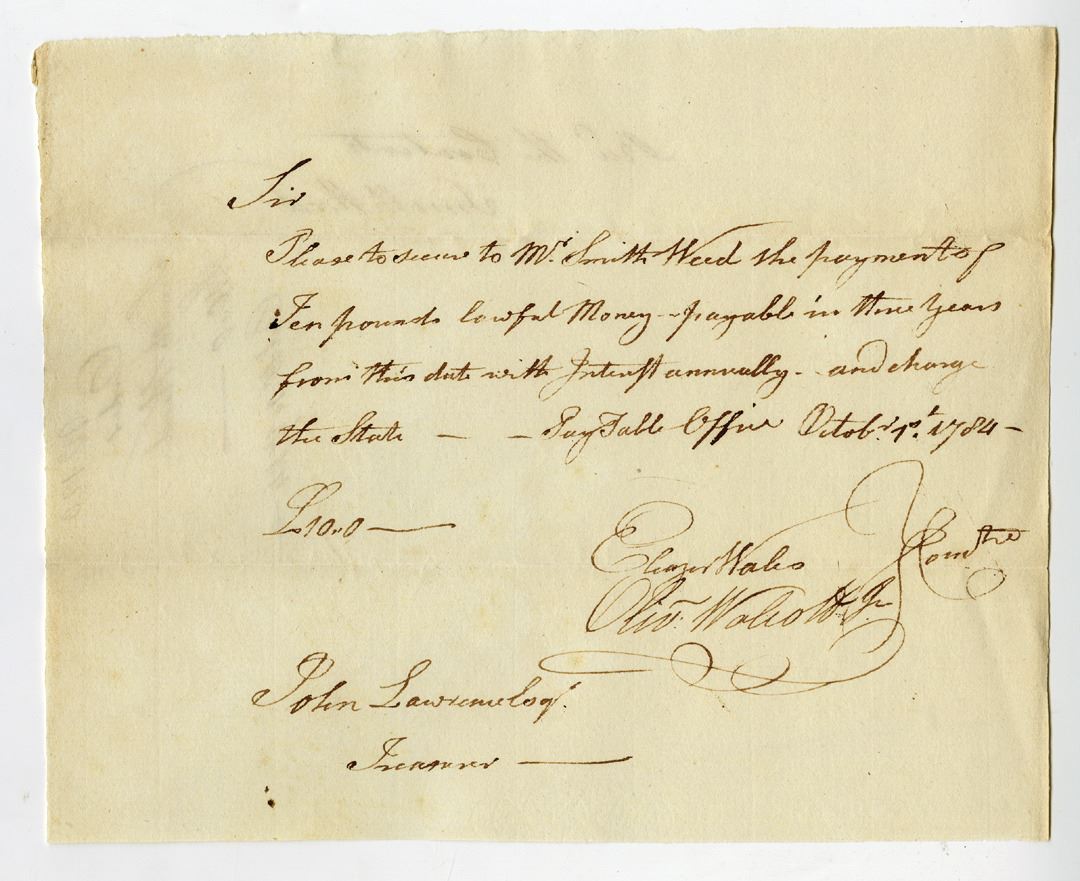 Sir
Please to secure to Mr. Smith Weed the payment of
Ten pounds lawful Money - payable in three Years
from this date with Interest annually - and charge
the State — — Pay Table Office Octobr. 1st. 1784 -
£10..0 —
Eleazer Wales
Olivr. Wolcott Jr
Comtee
John Lawrence Esqr.
Treasurer —